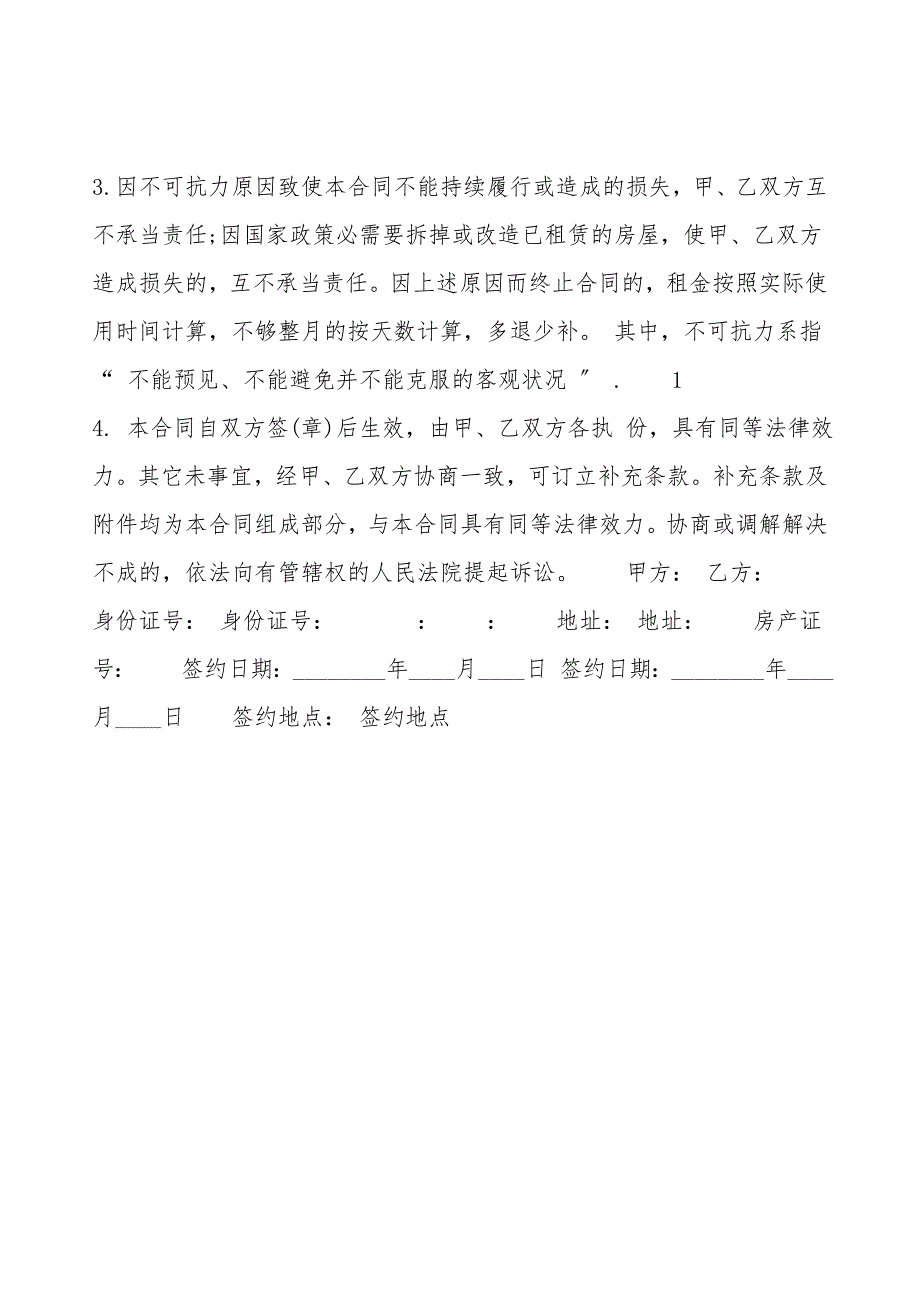 3.因不可抗力原因致使本合同不能持续履行或造成的损失，甲、乙双方互
不承当责任;因国家政策必需要拆掉或改造已租赁的房屋，使甲、乙双方
造成损失的，互不承当责任。因上述原因而终止合同的，租金按照实际使
用时间计算，不够整月的按天数计算，多退少补。 其中，不可抗力系指
“ 不能预见、不能避免并不能克服的客观状况 〞 . 1
4. 本合同自双方签(章)后生效，由甲、乙双方各执 份，具有同等法律效
力。其它未事宜，经甲、乙双方协商一致，可订立补充条款。补充条款及
附件均为本合同组成部分，与本合同具有同等法律效力。协商或调解解决
不成的，依法向有管辖权的人民法院提起诉讼。 甲方： 乙方：
身份证号： 身份证号： ： ： 地址： 地址： 房产证
号： 签约日期：________年____月____日 签约日期：________年____
月____日 签约地点： 签约地点